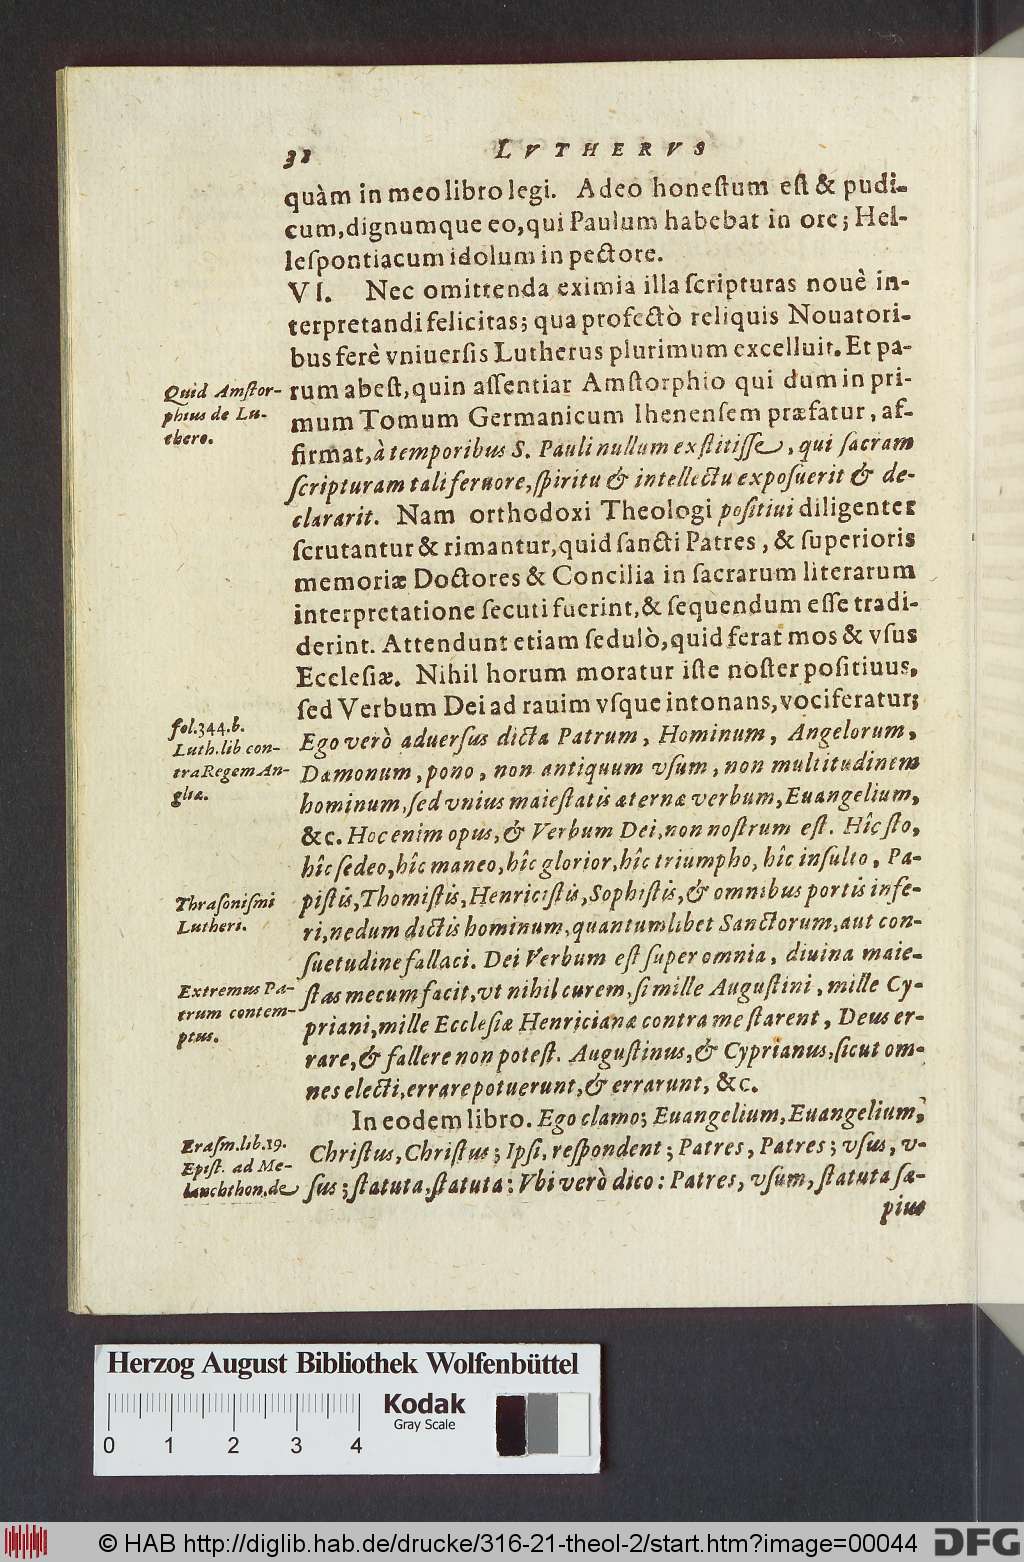 32 LVTHERVS
quàm in meo libro legi. Adeo honeſtum eſt & pudi-
cum, dignumque eo, qui Paulum habebat in ore; Hel-
leſpontiacum idolum in pectore.
VI. Nec omittenda eximia illa ſcripturas nouè in-
terpretandi felicitas; qua profectò reliquis Nouatori-
bus ferè vniuerſis Lutherus plurimum excelluit. Et pa-
Quid Amſtor-
phius de Lu-
thero.
rum abeſt, quin aſſentiar Amſtorphio qui dum in pri-
mum Tomum Germanicum Ihenenſem præfatur, af-
firmat, à temporibus S. Pauli nullum exſtitiſſe, qui ſacram
ſcripturam tali feruore, ſpiritu & intellectu expoſuerit & de-
clararit. Nam orthodoxi Theologi poſitiui diligenter
ſcrutantur & rimantur, quid ſancti Patres, & ſuperioris
memoriæ Doctores & Concilia in ſacrarum literarum
interpretatione ſecuti fuerint, & ſequendum eſſe tradi-
derint. Attendunt etiam ſedulò, quid ferat mos & vſus
Eccleſiæ. Nihil horum moratur iſte noſter poſitiuus,
ſed Verbum Dei ad rauim vſque intonans, vociferatur;
fol.344.b.
Luth. lib con-
tra Regem An-
gliæ.
Ego verò aduerſus dicta Patrum, Hominum, Angelorum,
Dæmonum, pono, non antiquum vſum, non multitudinem
hominum, ſed vnius maieſtatis æternæ verbum, Euangelium,
&c. Hoc enim opus, & Verbum Dei, non noſtrum eſt. Hîc ſto,
hîc ſedeo, hîc maneo, hîc glorior, hîc triumpho, hîc inſulto, Pa-
Thraſoniſmi
Lutheri.
piſtis, Thomiſtis, Henriciſtis, Sophiſtis, & omnibus portis infe-
ri, nedum dictis hominum, quantumlibet Sanctorum, aut con-
ſuetudine fallaci. Dei Verbum eſt ſuper omnia, diuina maie-
Extremus Pa-
trum contem-
ptus.
ſtas mecum facit, vt nihil curem, ſi mille Auguſtini, mille Cy-
priani, mille Eccleſiæ Henricianæ contra me ſtarent, Deus er-
rare, & fallere non poteſt. Auguſtinus, & Cyprianus, ſicut om-
nes electi, errare potuerunt, & errarunt, &c.
In eodem libro. Ego clamo; Euangelium, Euangelium,
Eraſm.lib.19.
Epiſt. ad Me-
lanchthon, de
Chriſtus, Chriſtus; Ipſi, reſpondent; Patres, Patres; vſus, v-
ſus; ſtatuta, ſtatuta: Vbi verò dico: Patres, vſum, ſtatuta ſæ-
pius
Herzog August Bibliothek Wolfenbüttel
Kodak
Gray Scale
0 1 2 3 4
© HAB http://diglib.hab.de/drucke/316-21-theol-2/start.htm?image=00044
DFG